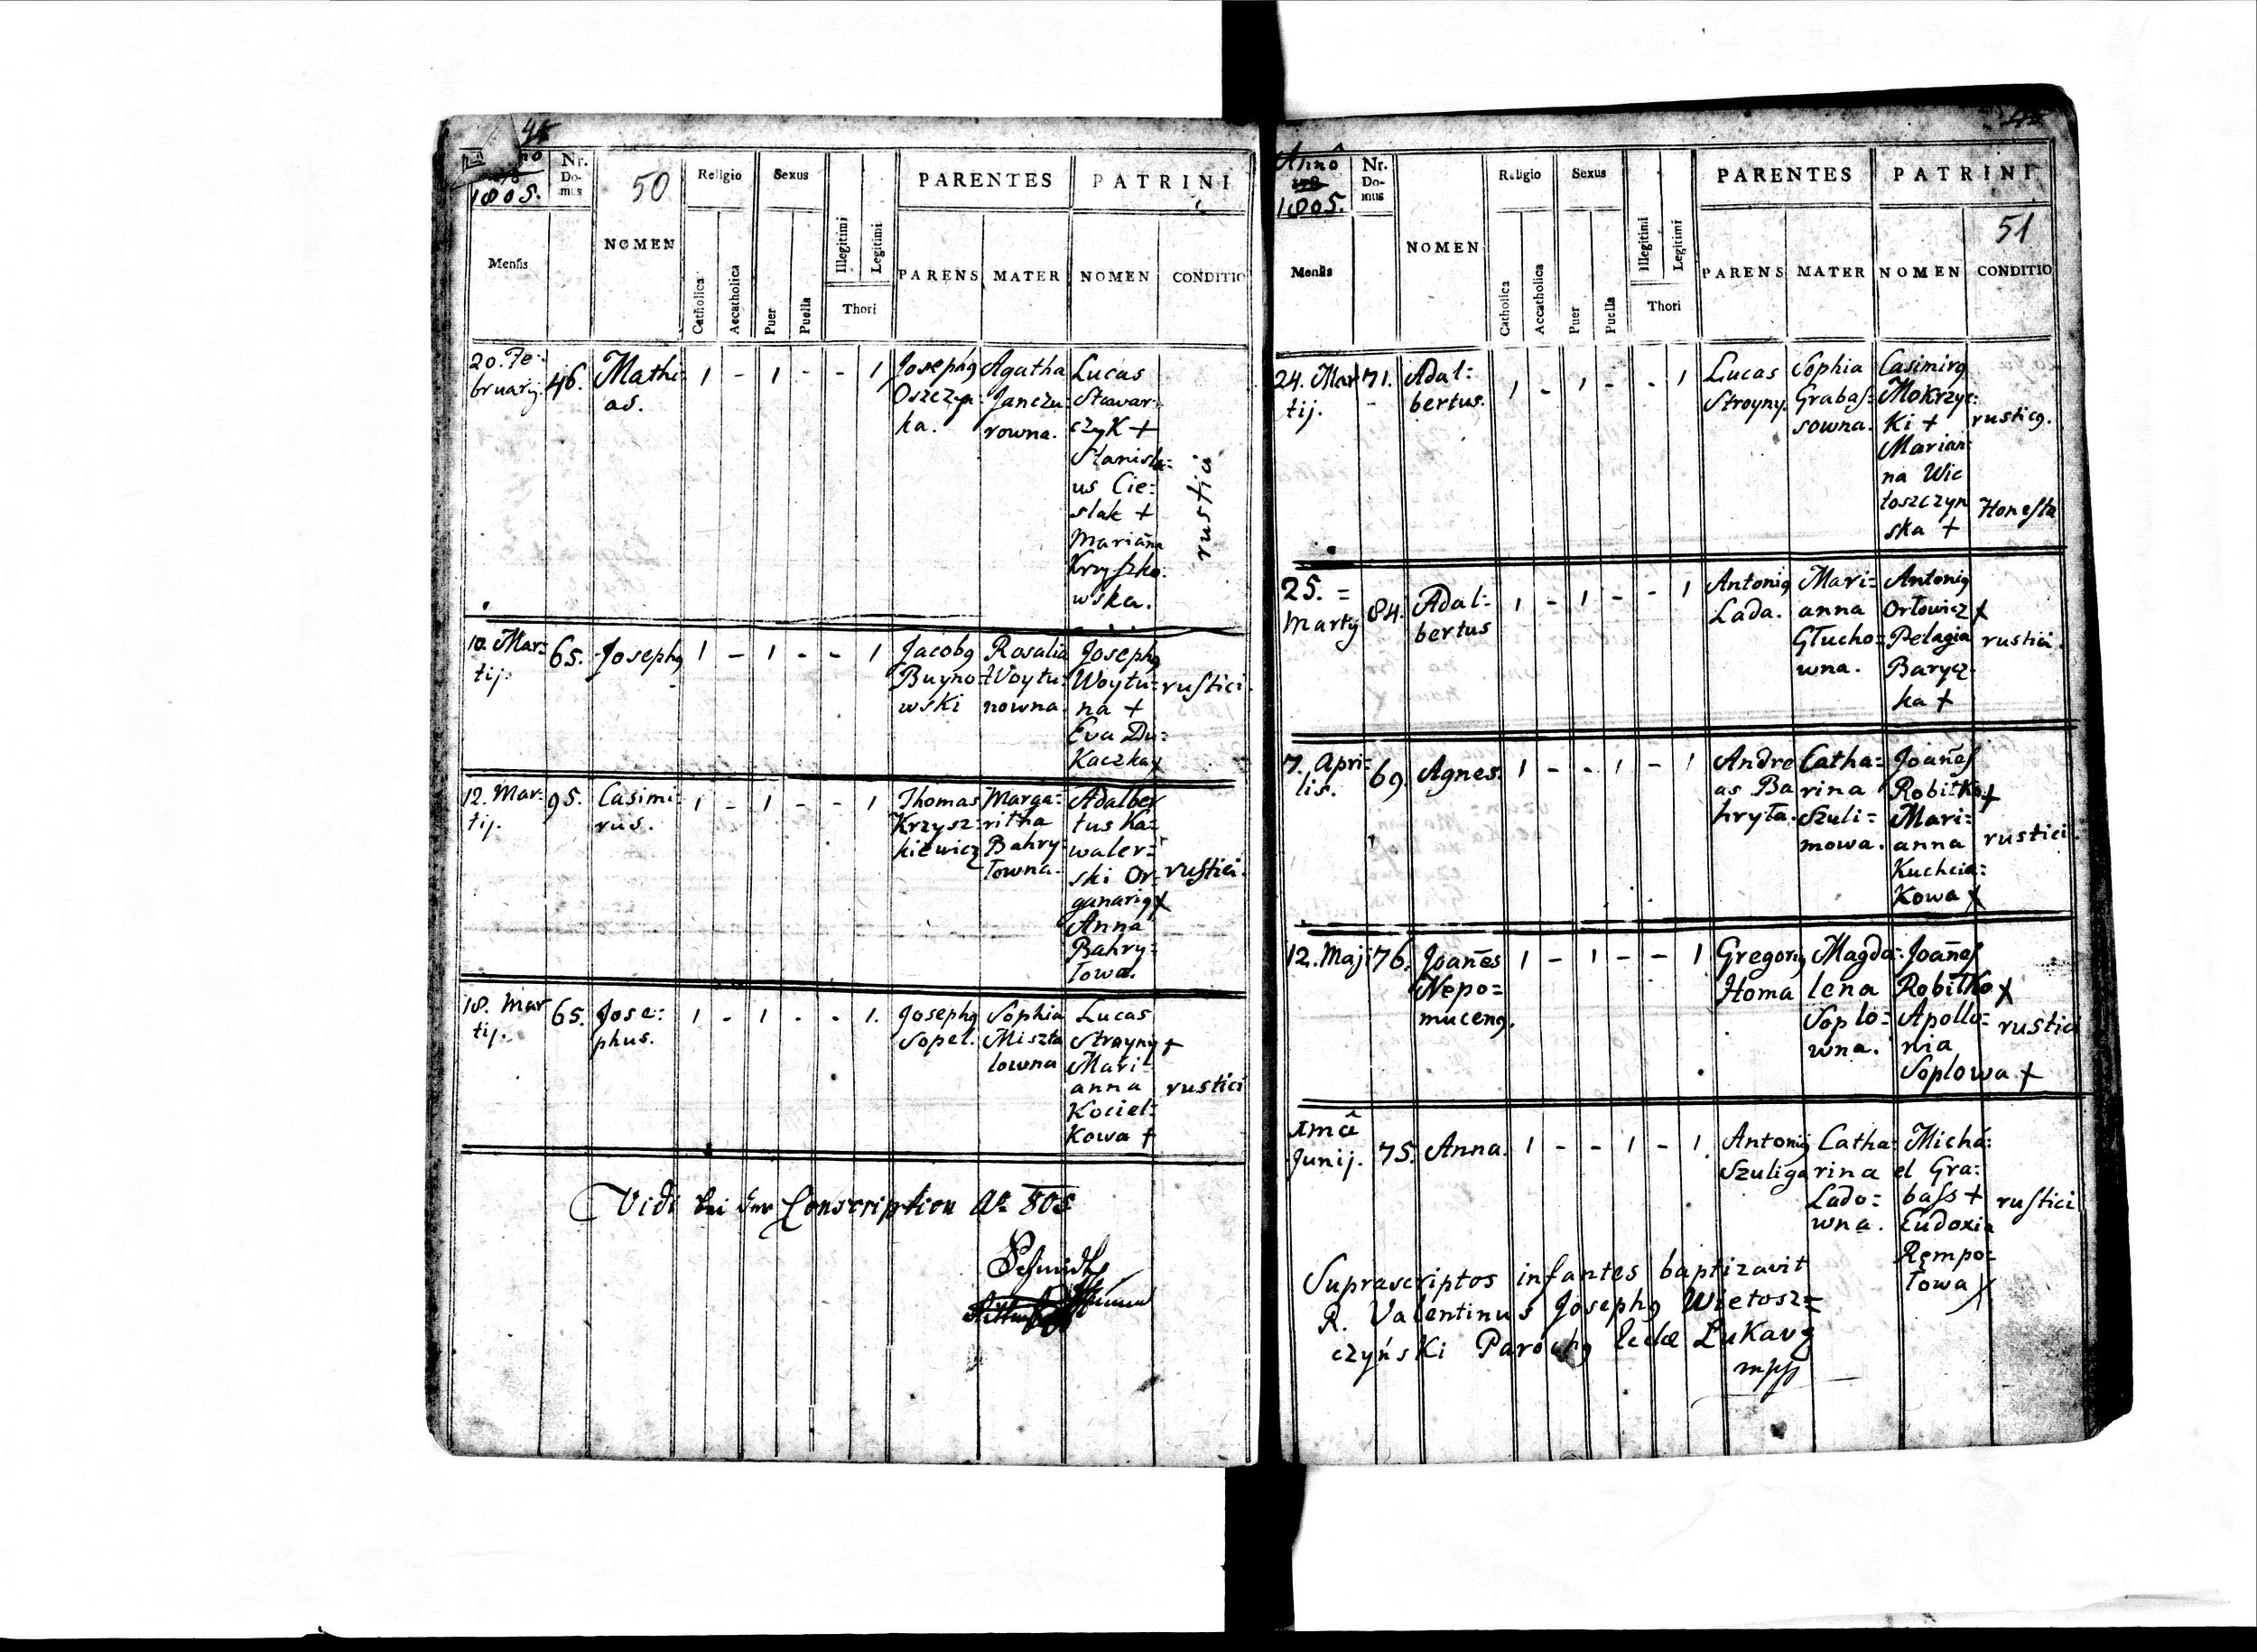 45
Anno
1805.
Nr.
Do-
mus
50
Religio
Sexus
PARENTES
PATRINI
Mensis
NOMEN
Catholica
Accatholica
Puer
Puella
Illegitimi
Legitimi
Thori
PARENS
MATER
NOMEN
CONDITIO
20. Fe-
bruarij.
46.
Mathi
as.
1 - 1 - - 1
Josephꝰ
Oszczyp:
ka.
Agatha
Janczu
rowna.
Lucas
Stawar:
czyk +
Stanisla:
us Cie:
slak +
Mariana
Krzyszko
wska.
rustici
10. Mar:
tij.
65.
Josephꝰ
1 - 1 - - 1
Jacobꝰ
Buyno
wski
Rosalia
Woytu:
nowna.
Josephꝰ
Woytu:
na +
Eva Du:
Kaczka +
rustici.
12. Mar:
tij.
95.
Casimi:
rus.
1 - 1 - - 1
Thomas
Krzysz:
kiewicz
Marga:
ritha
Bahry
łowna.
Adalber
tus Ka:
waler:
ski Or:
ganariꝰ +
Anna
Bahry:
łowa.
rustici.
18. Mar
tij.
65.
Jose:
phus.
1 - 1 - - 1.
Josephꝰ
Sopel.
Sophia
Miszta
lowna
Lucas
Stroyny +
Mari:
anna
Kociel:
Kowa +
rustici
Vidi bei der Conscription Ao 805
Schmidt
Anno
1805.
Nr.
Do-
mus
NOMEN
Religio
Sexus
PARENTES
PATRINI
51
Mensis
Catholica
Accatholica
Puer
Puella
Illegitimi
Legitimi
Thori
PARENS
MATER
NOMEN
CONDITIO
24. Mar
tij.
71.
Adal:
bertus.
1 - 1 - - 1
Lucas
Stroyny.
Sophia
Grabas:
sowna.
Casimirꝰ
Mokrzyc:
Ki +
Marian
na Wie
toszczyn
ska +
rusticꝰ.
Honesta
25. =
Martij
84.
Adal:
bertus
1 - 1 - - 1
Antoniꝰ
Lada.
Mari:
anna
Głucho:
wna.
Antoniꝰ
Orłowicz +
Pelagia
Barycz
ka +
rustici.
7. Apri:
lis.
69.
Agnes.
1 - - 1 - 1
Andre
as Ba
hryła.
Catha:
rina
Szuli:
mowa.
Joañes
Robitko +
Mari:
anna
Kuchcia:
Kowa +
rustici.
12. Maji
76.
Joañes
Nepo=
mucenꝰ.
1 - 1 - - 1
Gregoriꝰ
Homa
Magda:
lena
Soplo:
wna.
Joañes
Robitko +
Apollo:
nia
Soplowa +
rustici
1mâ
Junij.
75.
Anna.
1 - - 1 - 1.
Antoniꝰ
Szuliga
Catha:
rina
Lado:
wna.
Michá:
el Gra:
bass +
Eudoxia
Rempo:
łowa +
rustici
Suprascriptos infantes baptizavit
R. Valentinus Josephꝰ Wietosz=
czyński Parochꝰ Eccłæ Lukavꝫ
mpp